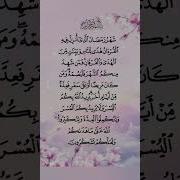 شَهْرُ رَمَضَانَ الَّذِي أُنزِلَ فِيهِ
الْقُرْآنُ هُدًى لِّلنَّاسِ وَبَيِّنَاتٍ مِّنَ
الْهُدَىٰ وَالْفُرْقَانِ ۚ فَمَن شَهِدَ
مِنكُمُ الشَّهْرَ فَلْيَصُمْهُ ۖ وَمَن
كَانَ مَرِيضًا أَوْ عَلَىٰ سَفَرٍ فَعِدَّةٌ
مِّنْ أَيَّامٍ أُخَرَ ۗ يُرِيدُ اللَّهُ بِكُمُ
الْيُسْرَ وَلَا يُرِيدُ بِكُمُ الْعُسْرَ
وَلِتُكْمِلُوا الْعِدَّةَ وَلِتُكَبِّرُوا
اللَّهَ عَلَىٰ مَا هَدَاكُمْ
وَلَعَلَّكُمْ تَشْكُرُونَ